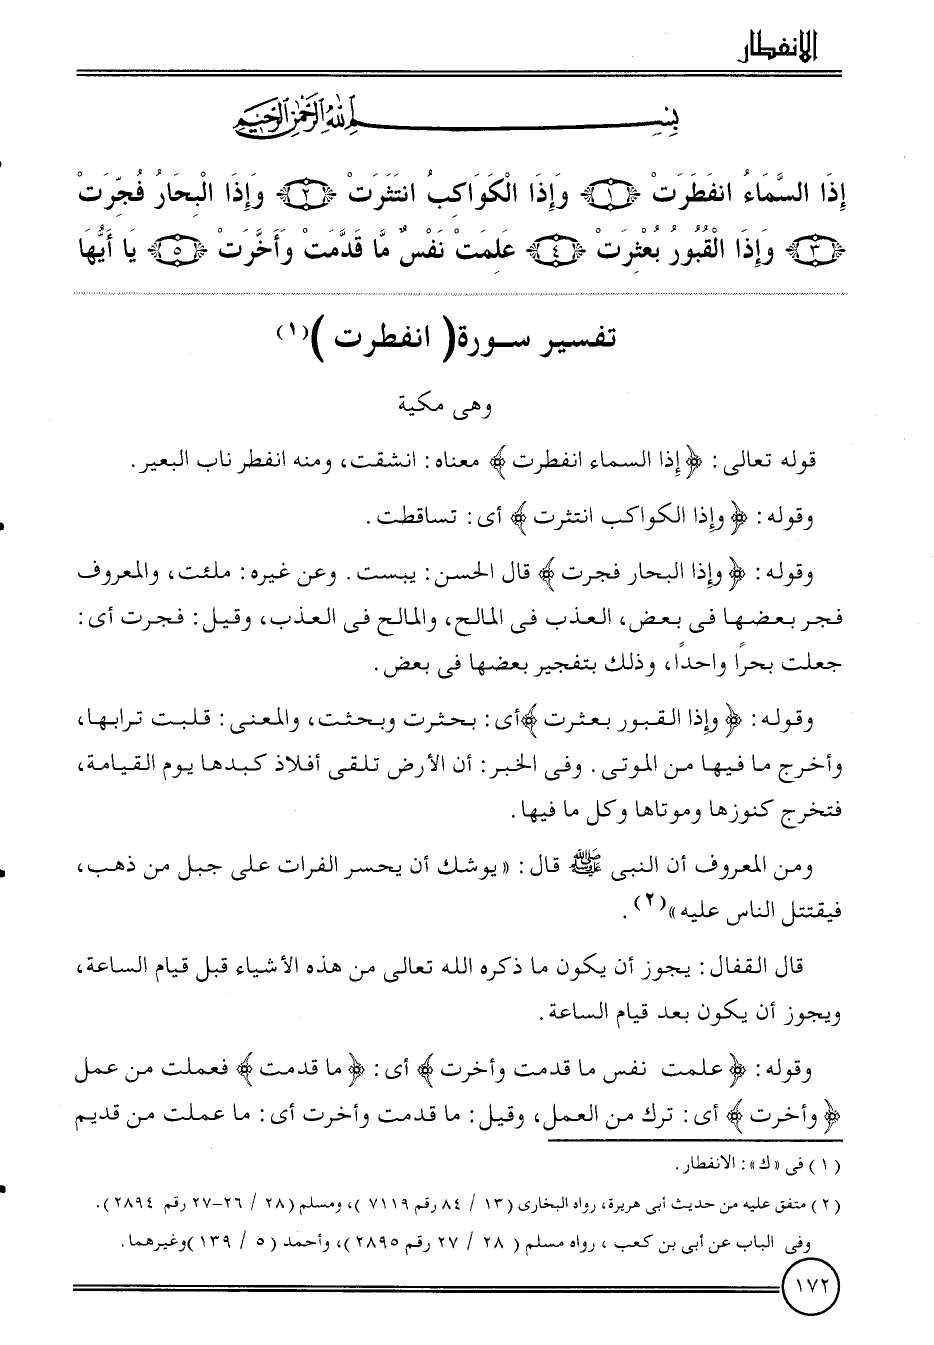 الانفطار
بسم الله الرحمن الرحيم
إِذَا السَّمَاءُ انفَطَرَتْ ﴿١﴾ وَإِذَا الْكَوَاكِبُ انتَثَرَتْ ﴿٢﴾ وَإِذَا الْبِحَارُ فُجِّرَتْ
﴿٣﴾ وَإِذَا الْقُبُورُ بُعْثِرَتْ ﴿٤﴾ عَلِمَتْ نَفْسٌ مَّا قَدَّمَتْ وَأَخَّرَتْ ﴿٥﴾ يَا أَيُّهَا
تفسير سورة ( انفطرت )(١)
وهى مكية
قوله تعالى : ﴿ إذا السماء انفطرت ﴾ معناه : انشقت، ومنه انفطر ناب البعير.
وقوله : ﴿ وإذا الكواكب انتثرت ﴾ أى : تساقطت .
وقوله : ﴿ وإذا البحار فجرت ﴾ قال الحسن : يبست . وعن غيره : ملئت، والمعروف
فجر بعضها فى بعض، العذب فى المالح، والمالح فى العذب، وقيل : فجرت أى :
جعلت بحرًا واحدًا، وذلك بتفجير بعضها فى بعض .
وقوله : ﴿ وإذا القبور بعثرت ﴾أى : بحثرت وبحثت، والمعنى : قلبت ترابها،
وأخرج ما فيها من الموتى . وفى الخبر : أن الأرض تلقى أفلاذ كبدها يوم القيامة،
فتخرج كنوزها وموتاها وكل ما فيها.
ومن المعروف أن النبى ﷺ قال : «يوشك أن يحسر الفرات على جبل من ذهب،
فيقتتل الناس عليه»(٢) .
قال القفال : يجوز أن يكون ما ذكره الله تعالى من هذه الأشياء قبل قيام الساعة،
ويجوز أن يكون بعد قيام الساعة .
وقوله : ﴿ علمت نفس ما قدمت وأخرت ﴾ أى : ﴿ ما قدمت ﴾ فعملت من عمل
﴿ وأخرت ﴾ أى : ترك من العمل، وقيل : ما قدمت وأخرت أى : ما عملت من قديم
(١) فى «ك» : الانفطار .
(٢) متفق عليه من حديث أبى هريرة، رواه البخارى (١٣ / ٨٤ رقم ٧١١٩)، ومسلم (٢٨ / ٢٦-٢٧ رقم ٢٨٩٤) .
وفى الباب عن أبى بن كعب ، رواه مسلم ( ٢٨ / ٢٧ رقم ٢٨٩٥)، وأحمد (٥ / ١٣٩)وغيرهما .
١٧٢